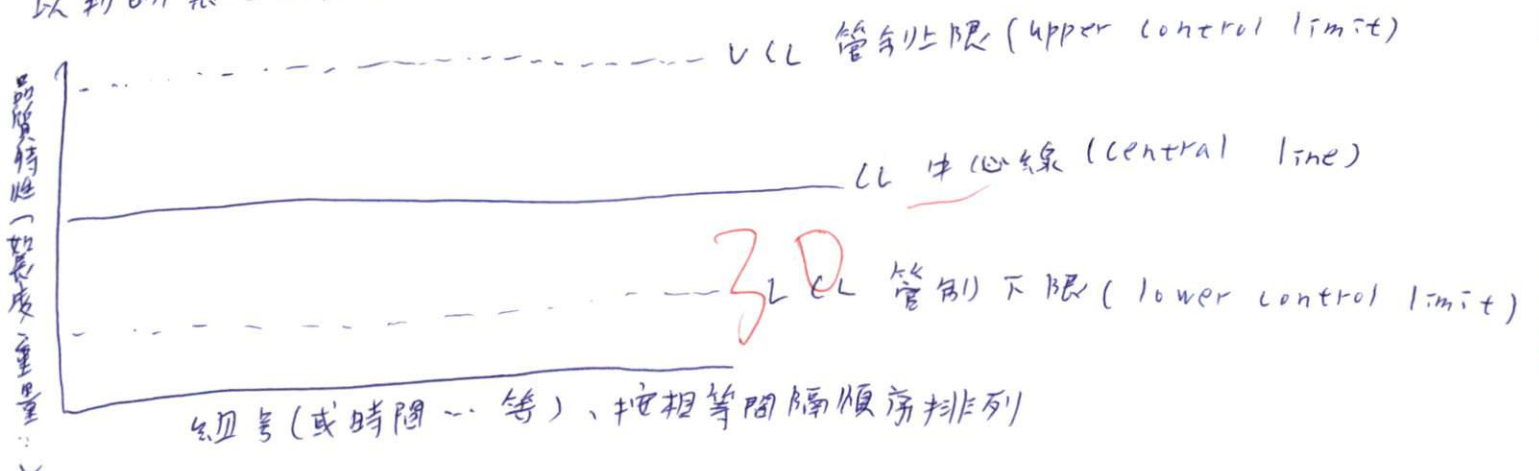 UCL 管制上限 (upper control limit)
品質特性 (如長度、重量…)
CL 中心線 (central line)
30
LCL 管制下限 (lower control limit)
組号 (或時間…等)、按相等間隔順序排列